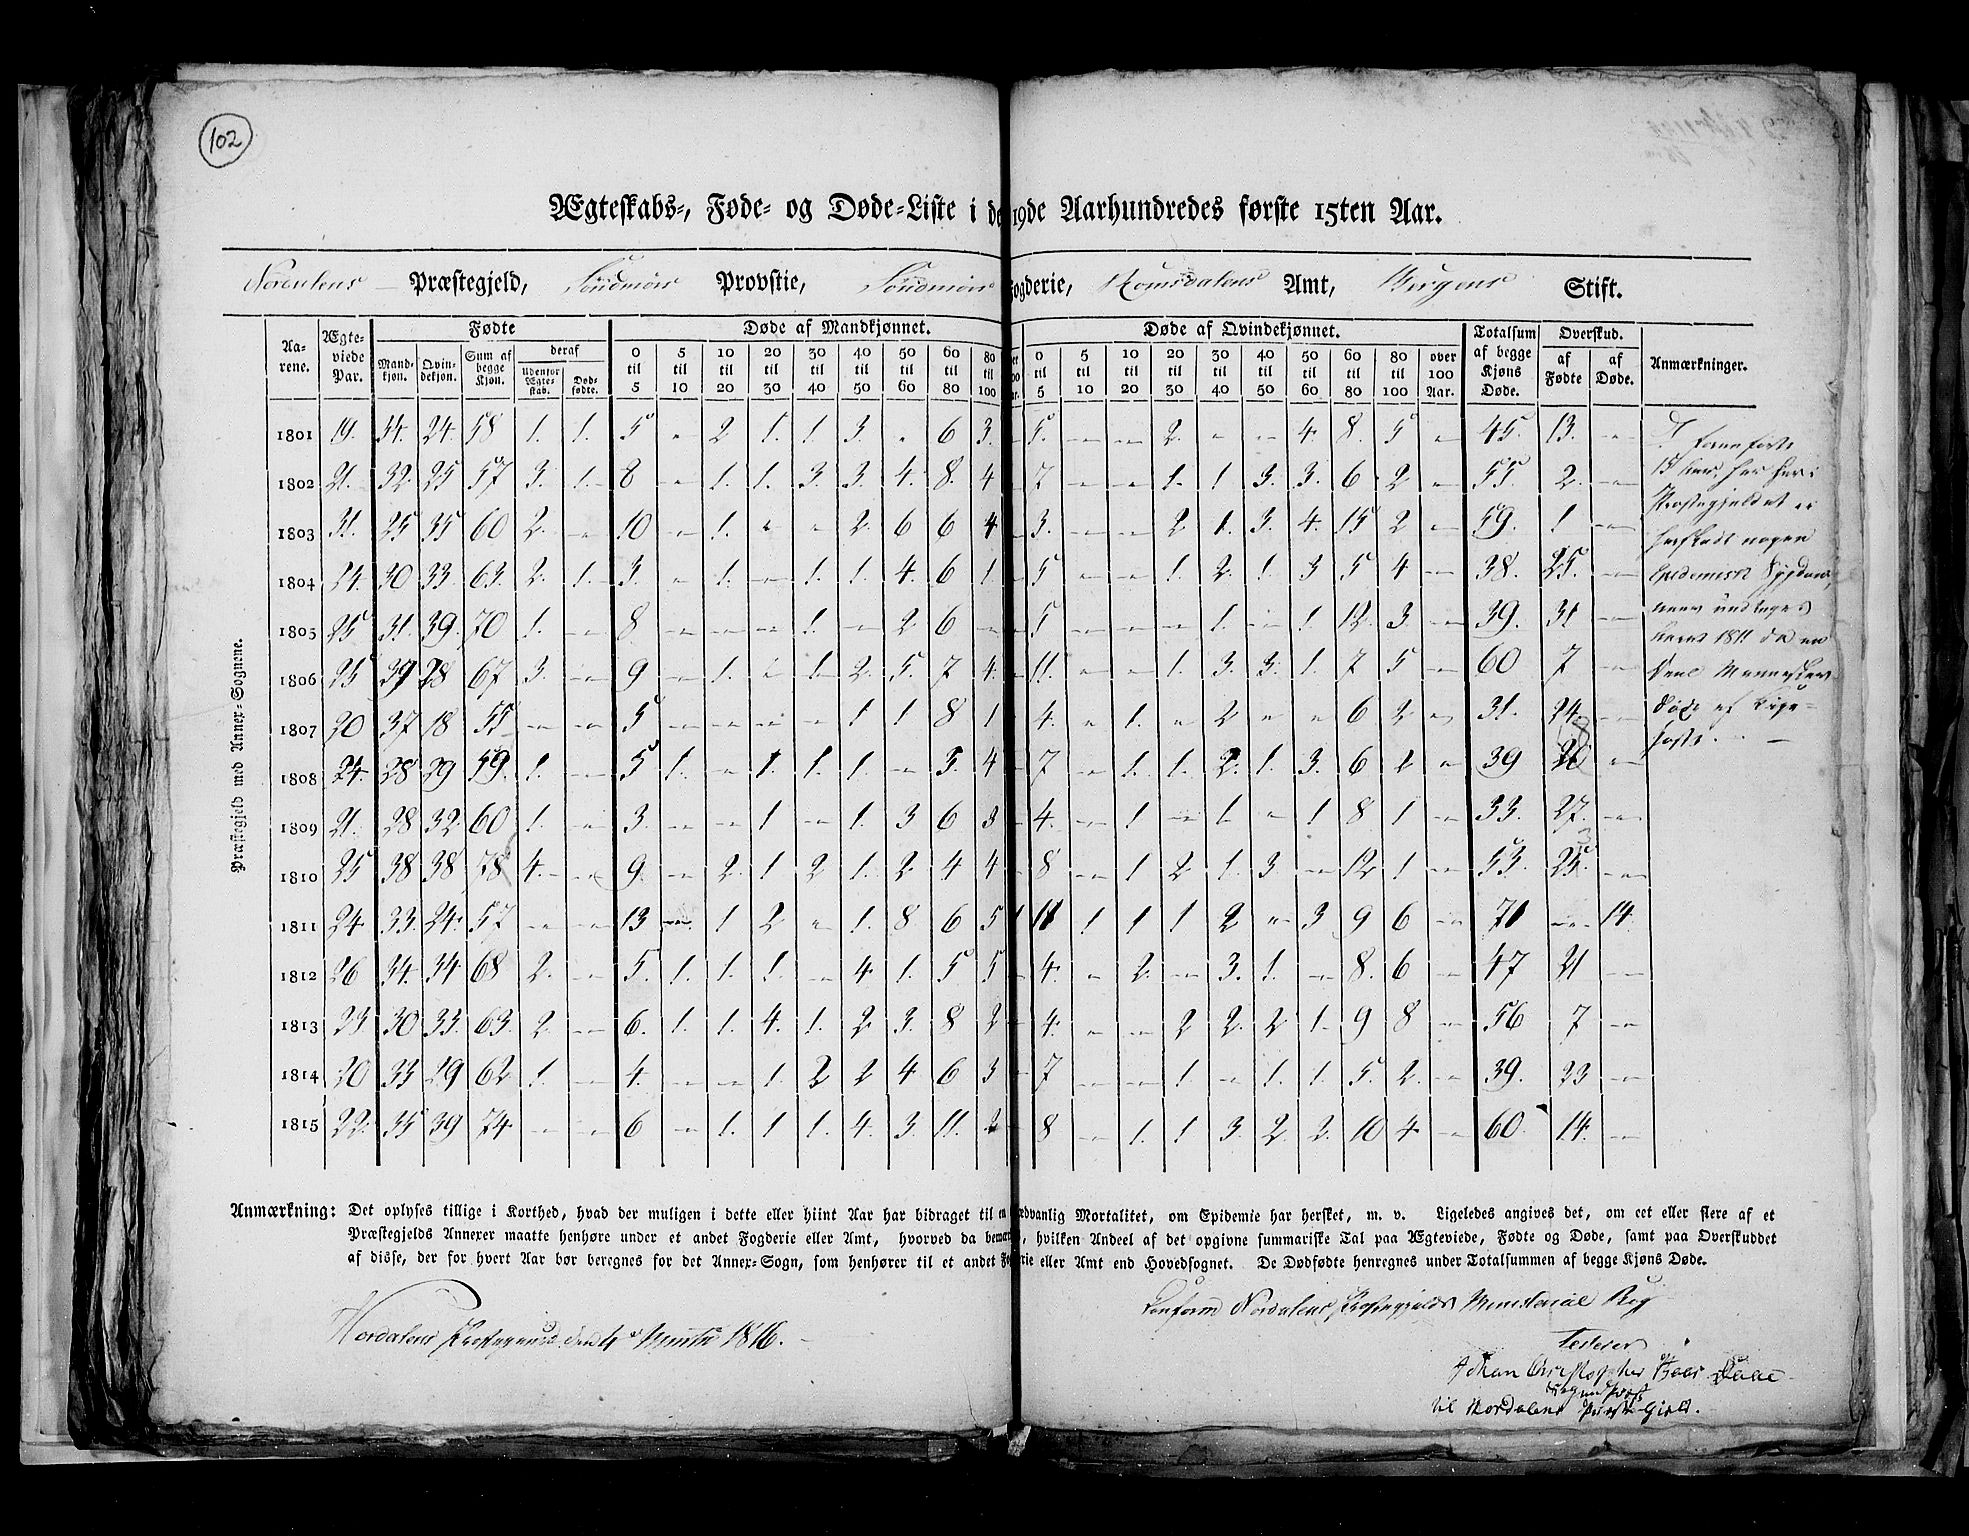 102
Ægteskabs-, Føde- og Døde-Liste i de 19de Aarhundredes første 15ten Aar.
Nordalens Præstegjeld, Söndmörs Provstie, Söndmörs Fogderie, Romsdalens Amt, Bergens Stift.
Præstegjeld med Annex-Sognene.
Aarene. Ægteviede Par. Fødte Døde af Mandkjønnet. Døde af Qvindekjønnet. Totalsum af begge Kjøns Døde. Overskud. Anmærkninger.
Mandkjøn. Qvindekjøn. Sum af begge Kjøn. deraf Udenfor Ægteskab. Dødfødte. 0 til 5 5 til 10 10 til 20 20 til 30 30 til 40 40 til 50 50 til 60 60 til 80 80 til 100 0 til 5 5 til 10 10 til 20 20 til 30 30 til 40 40 til 50 50 til 60 60 til 80 80 til 100 over 100 Aar. af Fødte af Døde.
1801 19. 34. 24. 58 1. 1. 5 - 2 1. 1 3. - 6 3. - 5. - - 2. - - 4. 8. 5 - 45. 13. -
1802 21. 32. 25 57 3. 1. 8 - 1. 1. 3 3. 4. 8. 4 - 7 - - 1. 1 3. 3. 6 2 - 55. 2. -
1803 31. 25 35 60 2. - 10 - 1. - - 2. 6 6 4 - 3. - - 2 1. 3. 4. 15 2 - 59. 1 -
1804 24. 30 33. 63. 2. 1. 3. - 1. - 1. 1. 4. 6 1 - 5 - - 1. 2. 1. 3 5 4 - 38. 25. -
1805 25 31. 39. 70 1. - 8 - - - 1. - 2 6 - - 5 - - - 1. - 1. 12. 3. - 39. 31 -
1806 25 39 28 67 3. - 9 - 1. - 1. 2. 5. 7 4. - 11. - - 1. 3. 3. 1. 7 5 - 60 7 -
1807 20 37 18 55 - - 5 - - - - 1 1. 8 1 - 4. - 1. - 2 - - 6 2 - 31. 24. -
1808 24. 28 29 59. 1. - 5 1. - 1. 1. 1. - 3. 4 - 7 - 1. 1. 2. 1. 3. 6 1 - 39 20 -
1809 21. 28 32. 60 1. - 3. - - 1 - 1. 3 6 3 - 4. - 1 - 1. - 1 8 1 - 33. 27. -
1810 25 38 38 78 4. - 9. - 2. 1 2 1. 2 4 4 - 8 - 1 2 1. 3 - 12 1 - 53. 25. -
1811 24. 33. 24. 57 - - 13 - 1 2 - 1. 8 6 5 1 11 1 1 1 2 - 3 9 6 - 71 - 14.
1812 26 34. 34 68 2. - 5. 1. 1. 1. - 4. 1. 5 5 - 4. - 2. - 3. 1. - 8. 6 - 47 21 -
1813 23. 30 33. 63. 2. - 6. 1. 1. 4. 1. 2 3. 8 2 - 4. - - 2 2. 2 1. 9 8 - 56 7 -
1814 20 33 29 62 1. - 4. - - 1. 2 2 4 6 3 - 7 - - 1. - 1. 1. 5. 2. - 39. 23 -
1815 22. 35 39 74 - - 6 - 1. 1 1. 4. 3. 11. 2 - 8 - 1. 1 3. 2. 2. 10 4 - 60 14. -
15 Aar har her i
Præstegjeldet ei
hersket nogen
Epidemisk Sygdom,
1811 da en
Deel Mennesker
døde af Kige-
hoste. -
Anmærkning: Det oplyses tillige i Korthed, hvad der muligen i dette eller hiint Aar har bidraget til en sædvanlig Mortalitet, om Epidemie har hersket, m. v. Ligeledes angives det, om eet eller flere af et
Præstegjelds Annexer maatte henhøre under et andet Fogderie eller Amt, hvorved da bemærkes, hvilken Andeel af det opgivne summariske Tal paa Ægteviede, Fødte og Døde, samt paa Overskuddet
af disse, der for hvert Aar bør beregnes for det Annex-Sogn, som henhører til et andet Fogderie eller Amt end Hovedsognet. De Dødfødte henregnes under Totalsummen af begge Kjøns Døde.
Conform Nordalens Præstegjelds Ministerial Bog
Nordalens Præstegaard 1816.
Testerer
Johan Christopher Daae
til Nordalens Præste Gield.